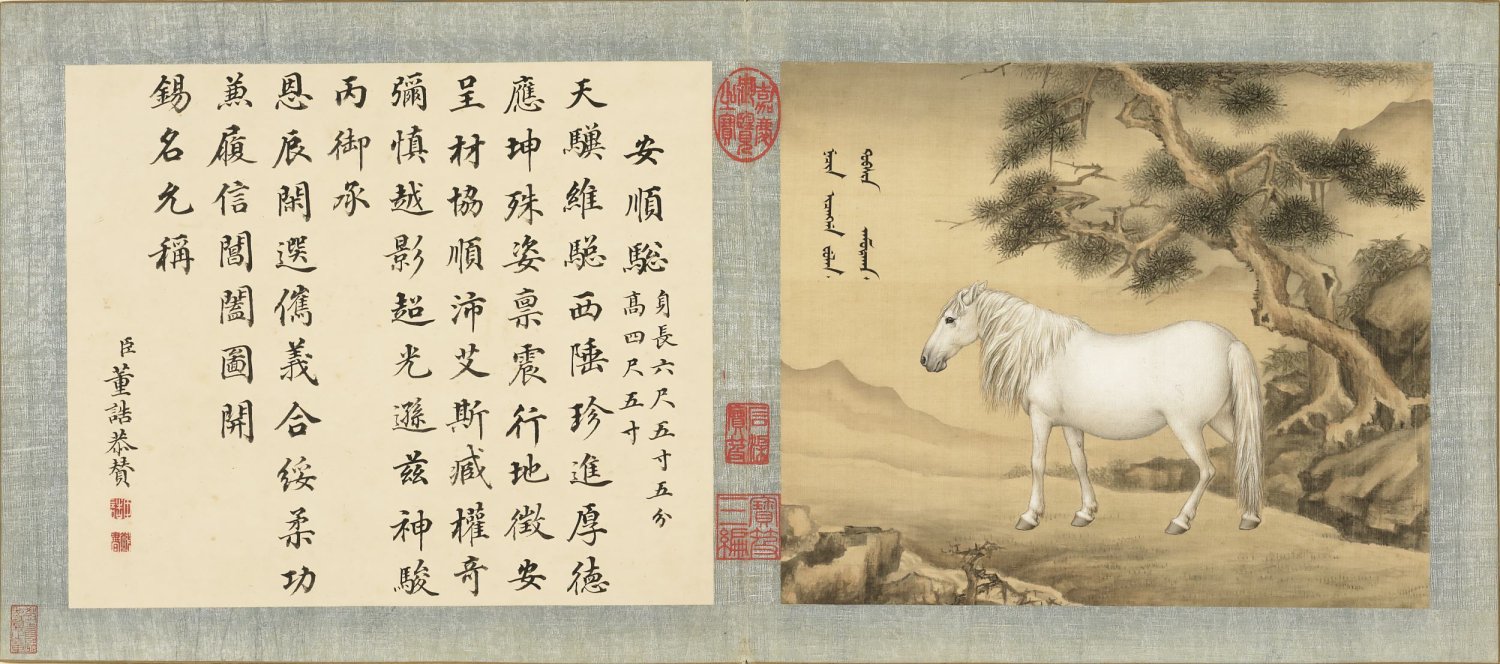 嘉慶御覽之寶
石渠寶笈
寶笈三編
安順騘 身長六尺五寸五分
髙四尺五寸
天驥維騘西陲珍進厚德
應坤殊姿禀震行地徵安
呈材協順沛艾斯臧權竒
彌慎越影超光遜茲神駿
丙御承
恩辰閑選儁義合綏柔功
兼履信閶闔圖開
錫名允稱
臣董誥恭贊